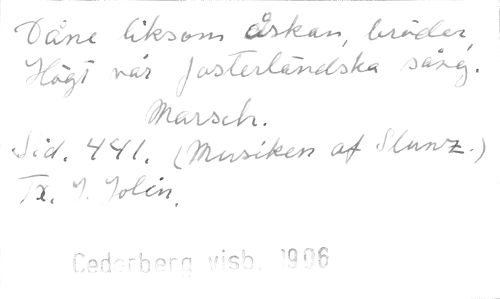 Dåne liksom åskan, bröder,
Högt vår fosterländska sång.
Marsch.
Sid. 441. (Musiken af Slunz.)
Tx. J. Jolin.
Cederberg visb. 1906